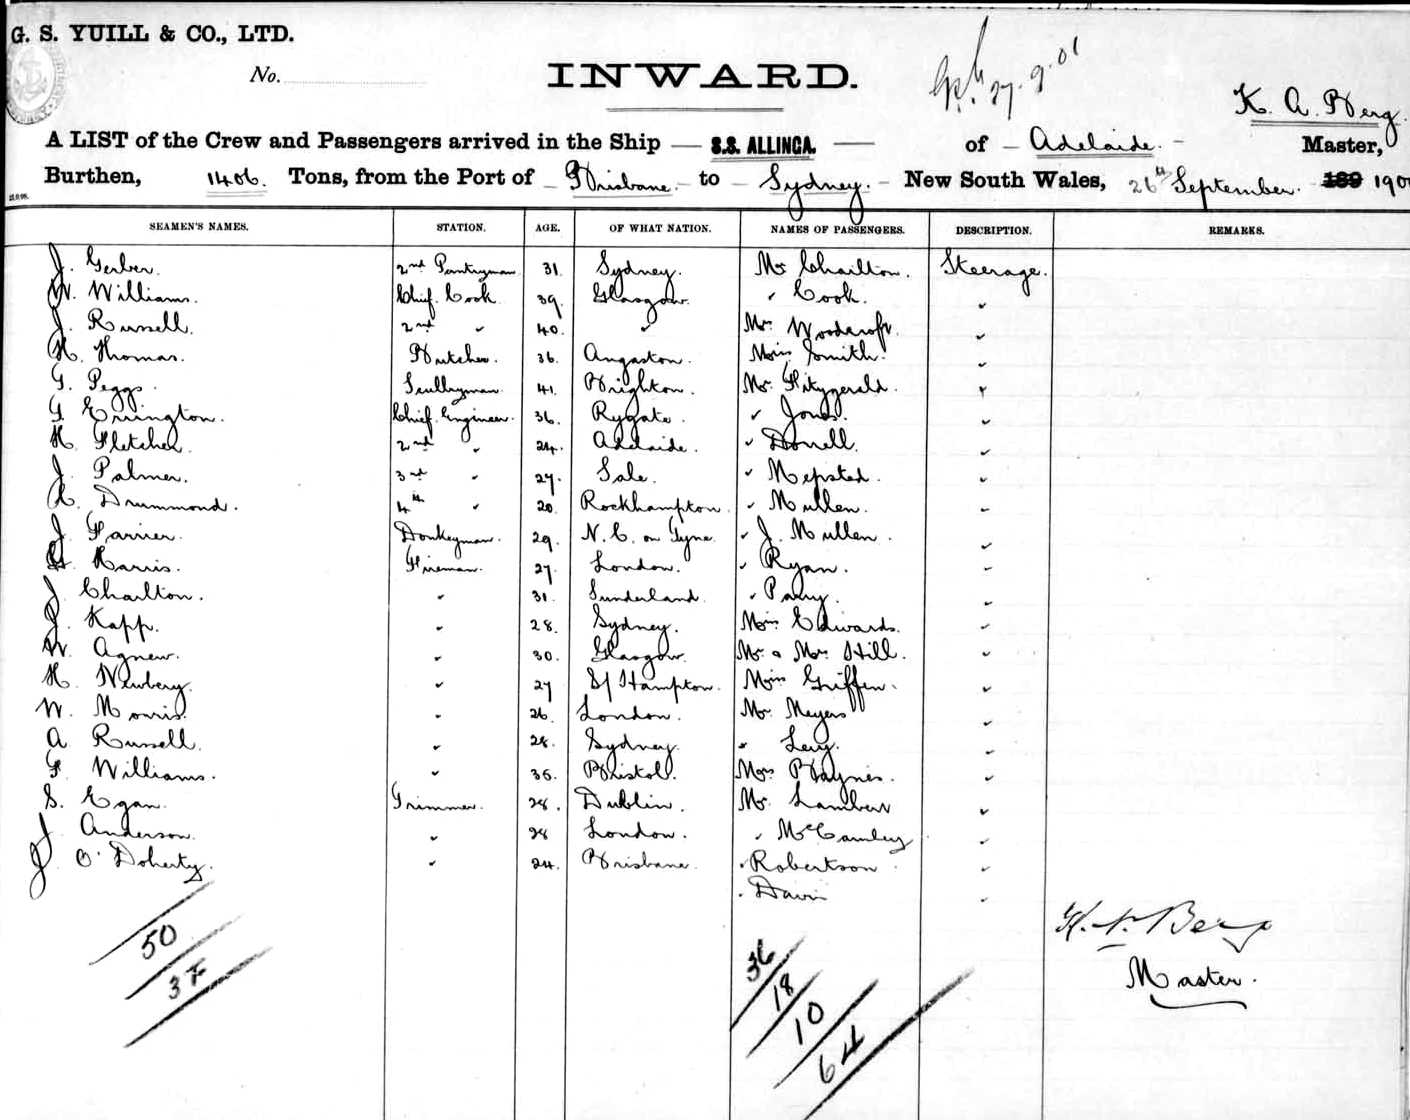 G. S. YUILL & CO., LTD.
No.
INWARD.
27.9.01
K. A. Berg.
A LIST of the Crew and Passengers arrived in the Ship — S.S. ALLINGA. — of — Adelaide. — Master,
Burthen, 1406. Tons, from the Port of — Brisbane. — to — Sydney. — New South Wales, 26th September. 189 190
SEAMEN'S NAMES. STATION. AGE. OF WHAT NATION. NAMES OF PASSENGERS. DESCRIPTION. REMARKS.
J. Gerber. 2nd Pantryman 31. Sydney. Mr Charlton. Steerage.
W. Williams. Chief Cook 39. Glasgow. " Cook. "
J. Russell. 2nd " 40. " Mrs Woodcroft. "
H. Thomas. Butcher. 36. Angaston. Miss Smith. "
G. Peggs. Scullryman 41. Brighton. Mr. Fitzgerald. "
G. Errington. Chief Engineer. 36. Rygate. " Jones. "
H. Fletcher. 2nd " 24. Adelaide. " Donell. "
J. Palmer. 3rd " 27. Sale. " Mepsted. "
Drummond. 4th " 20. Rockhampton. " Mullen. "
J. Farrier. Donkeyman. 29. N. C. on Tyne. " J. Mullen. "
Harris. Fireman. 27. London. " Ryan. "
J. Charlton. " 31. Sunderland. " Parry. "
J. Kapp. " 28. Sydney. Miss Edwards. "
W. Agnew. " 30. Glasgow. Mr. & Mrs Hill. "
H. Newbery. " 27 S/Hampton. Miss Griffen. "
W. Morris. " 26. London. Mr. Meyers "
A Russell. " 28. Sydney. " Levy. "
F. Williams. " 35. Bristol. Mrs Haynes. "
S. Egan. Trimmer. 28. Dublin. Mr. Lambert "
J. Anderson. " 28 London. " McCamley "
J. O'Doherty. " 24. Brisbane. " Robertson. "
" Davis "
50
37
36
18
10
64
K. A. Berg
Master.